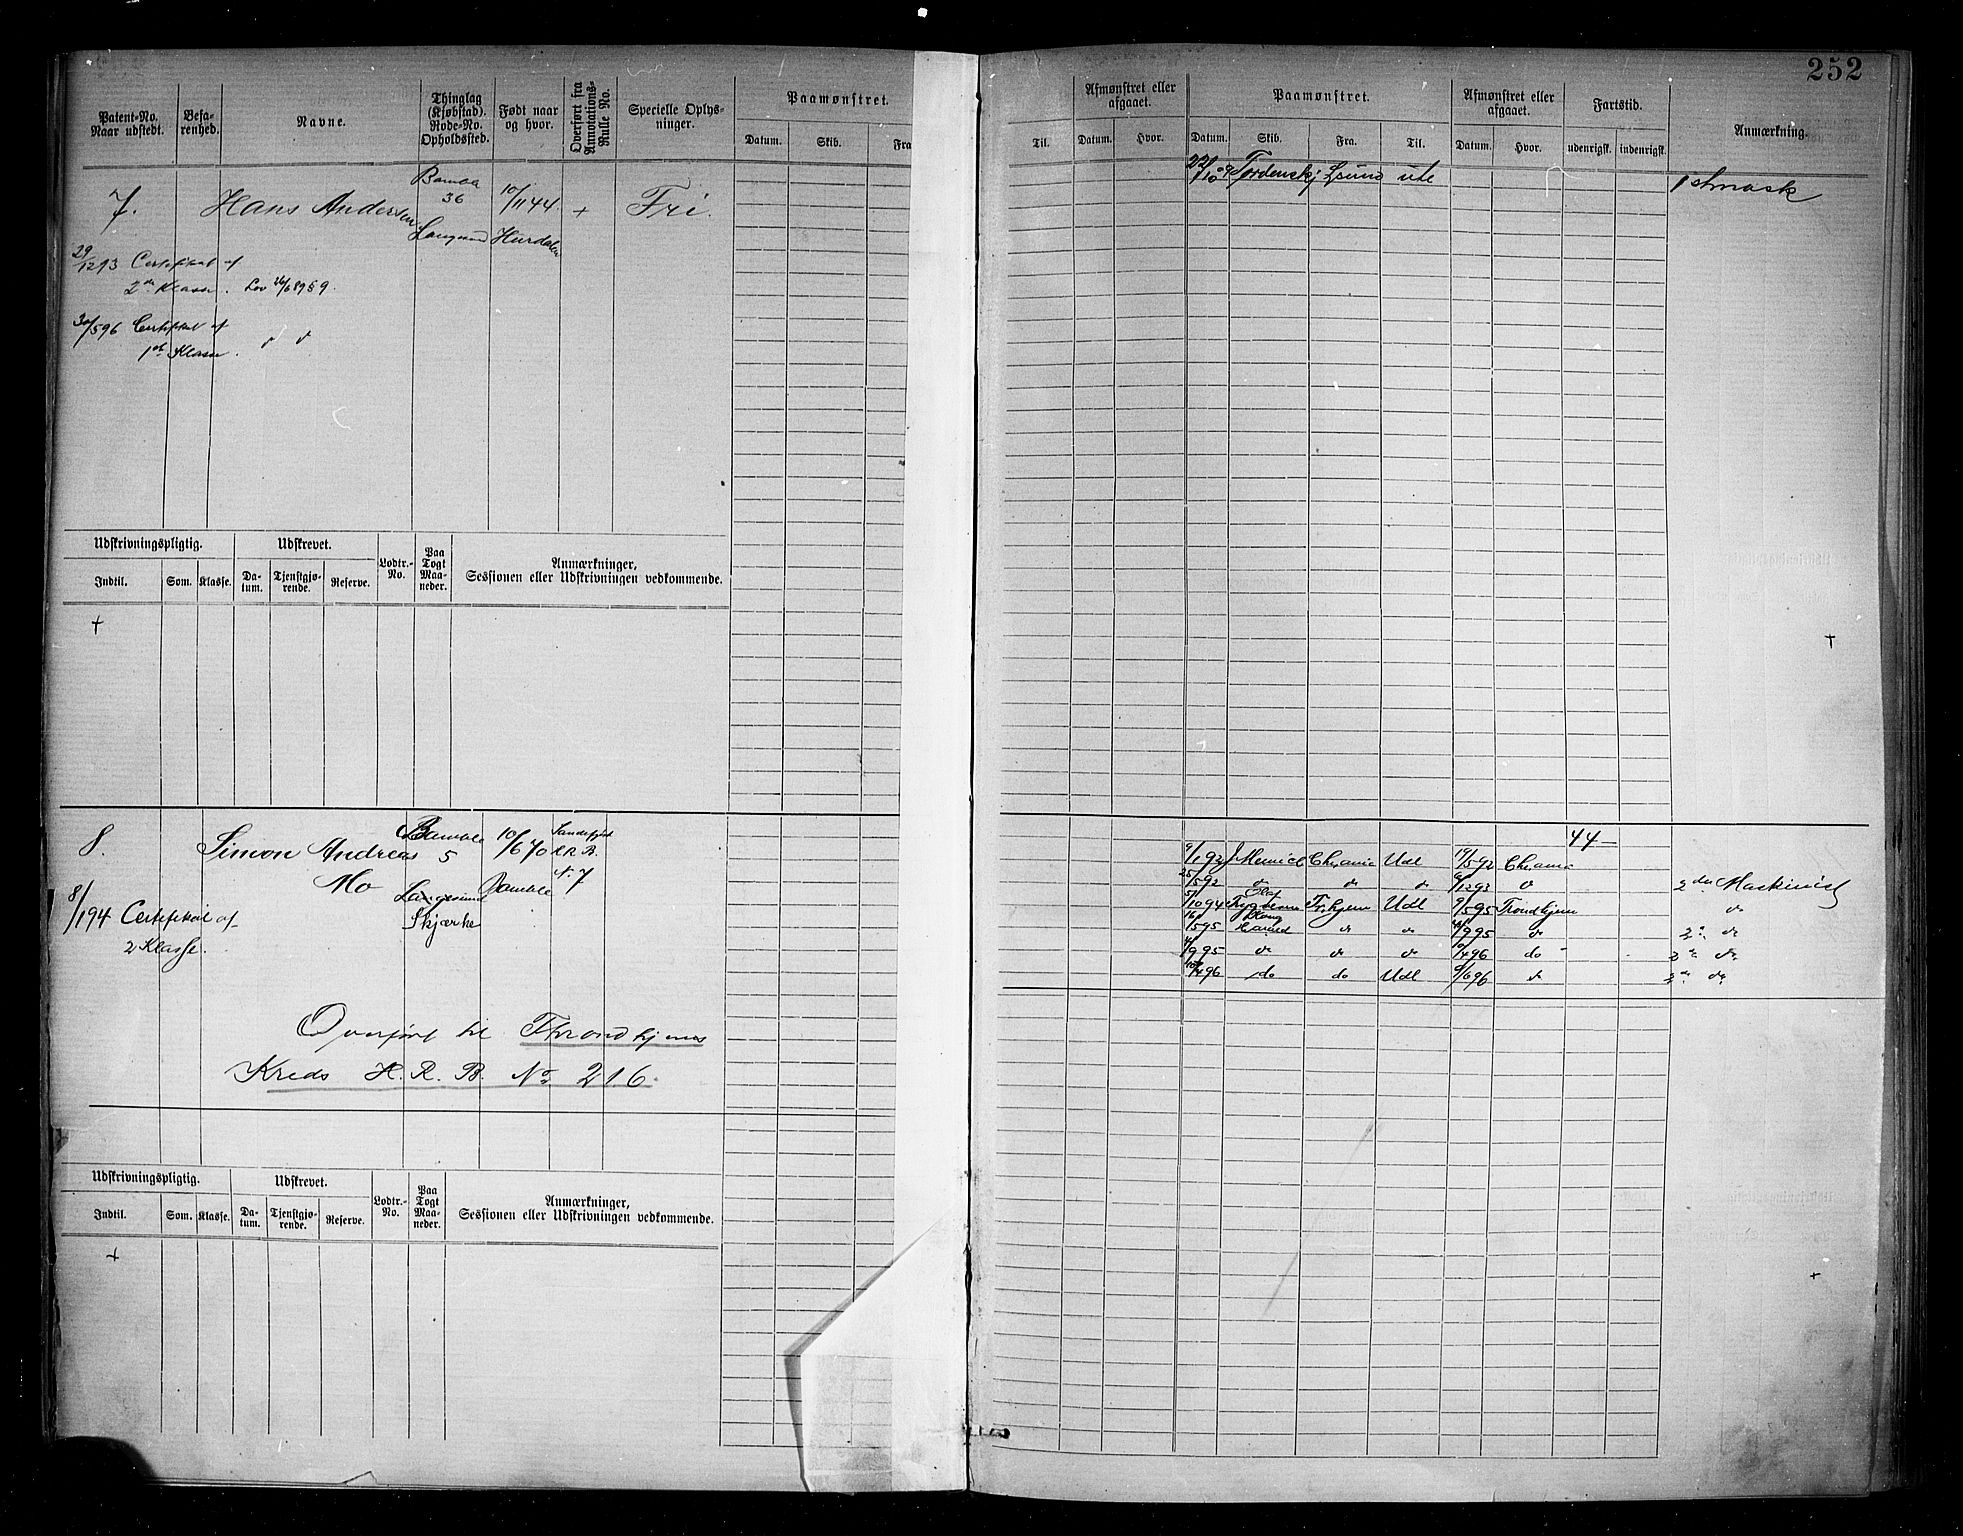 252
Patent-No. Naar udstedt.
Befarenhed.
Navne.
Thinglag (Kjøbstad). Rode-No. Opholdssted.
Født naar og hvor.
Overført fra Annotations-Rulle No.
Specielle Oplysninger.
Paamønstret.
Datum. Skib. Fra
Til.
Afmønstret eller afgaaet.
Datum. Hvor.
Paamønstret.
Datum. Skib. Fra. Til.
Afmønstret eller afgaaet.
Datum. Hvor.
Fartstid.
udenrigsk. indenrigsk.
Anmærkning.
7. Hans Andersen
Bamble
36
Langesund
10/11 44.
Hurdalen
+
Fri.
29/12 93 Certifikat af
2den Klasse. Lov
30/5 96 Certifikat af
1st Klasse.
22/10 09 Tordenskj Lsund ute 1st mask
Udskrivningspligtig.
Udskrevet.
Lodtr.-No.
Paa Togt Maaneder.
Anmærkninger, Sessionen eller Udskrivningen vedkommende.
Indtil. Som. Klasse. Datum. Tjenstgjørende. Reserve.
+
+
8. Simon Andreas
Mo
Bamble
5
Langesund
Skjærke
10/6 70
Bamble
Sandefjord
No. 7
8/1 94 Certifikat af
2 Klasse.
44 –
9/1 92 Chrania Udl 19/5 92 Chrania
25/5 92 do do do 93 do 2den Maskinist
94 Trhjem Udl 9/5 95 Trondhjem do
16/5 95 Harald do do 95 do 2den do
95 do do do 4 96 do do
4 96 do do Udl 9/6 96 do do
Overført til Throndhjems
Kreds H. R. B. No 216.
Udskrivningspligtig.
Udskrevet.
Lodtr.-No.
Paa Togt Maaneder.
Anmærkninger, Sessionen eller Udskrivningen vedkommende.
Indtil. Som. Klasse. Datum. Tjenstgjørende. Reserve.
+
+